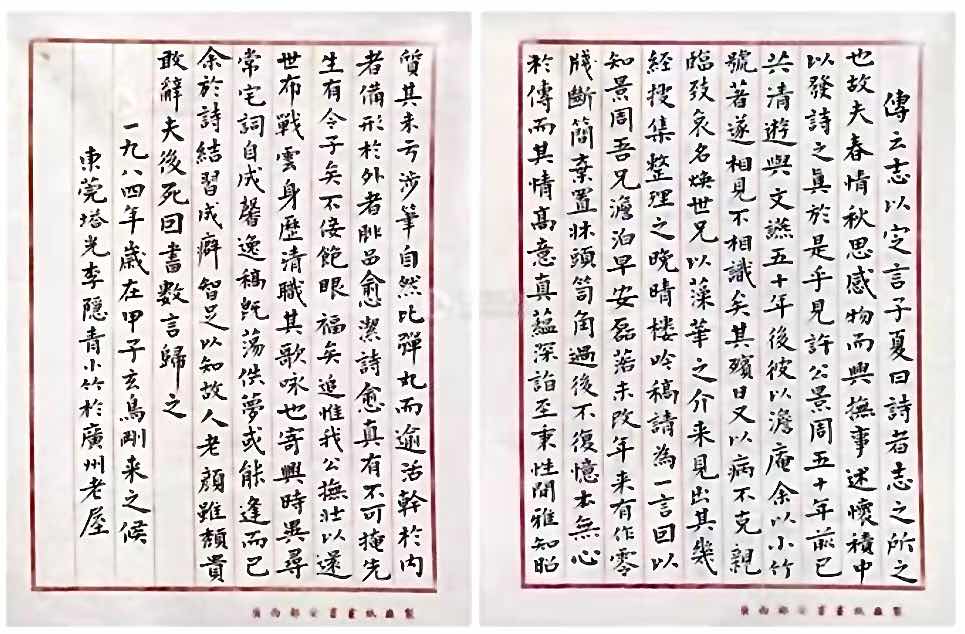 傳云志以定言子夏曰詩者志之所之
也故夫春情秋思感物而興撫事述懷積中
以發詩之真於是乎見許公景周五十年前已
共清遊與文讌五十年後彼以澹庵余以小竹
號著遂相見不相識矣其殯日又以病不克親
臨致哀名煥世兄以藻華之介來見出其幾
經搜集整理之晚晴樓吟稿請為一言回以
知景周吾兄澹泊早安磊落未改年來有作零
牋斷簡棄置牀頭笥角過後不復憶本無心
於傳而其情高意真蘊深詣至秉性閒雅知昭
質其未亏涉筆自然比彈丸而逾活幹於內
者備形於外者朏品愈潔詩愈真有不可掩先
生有令子矣不佞飽眼福矣追惟我公撫壯以還
世布戰雲身歷清職其歌咏也寄興時異尋
常宅詞自成馨逸稿既蕩佚夢或能逢而已
余於詩結習成癖智足以知故人老顏雖頹貴
敢辭夫後死回書數言歸之
一九八四年歲在甲子玄鳥剛来之候
東莞塔光李隱青小竹於廣州老屋